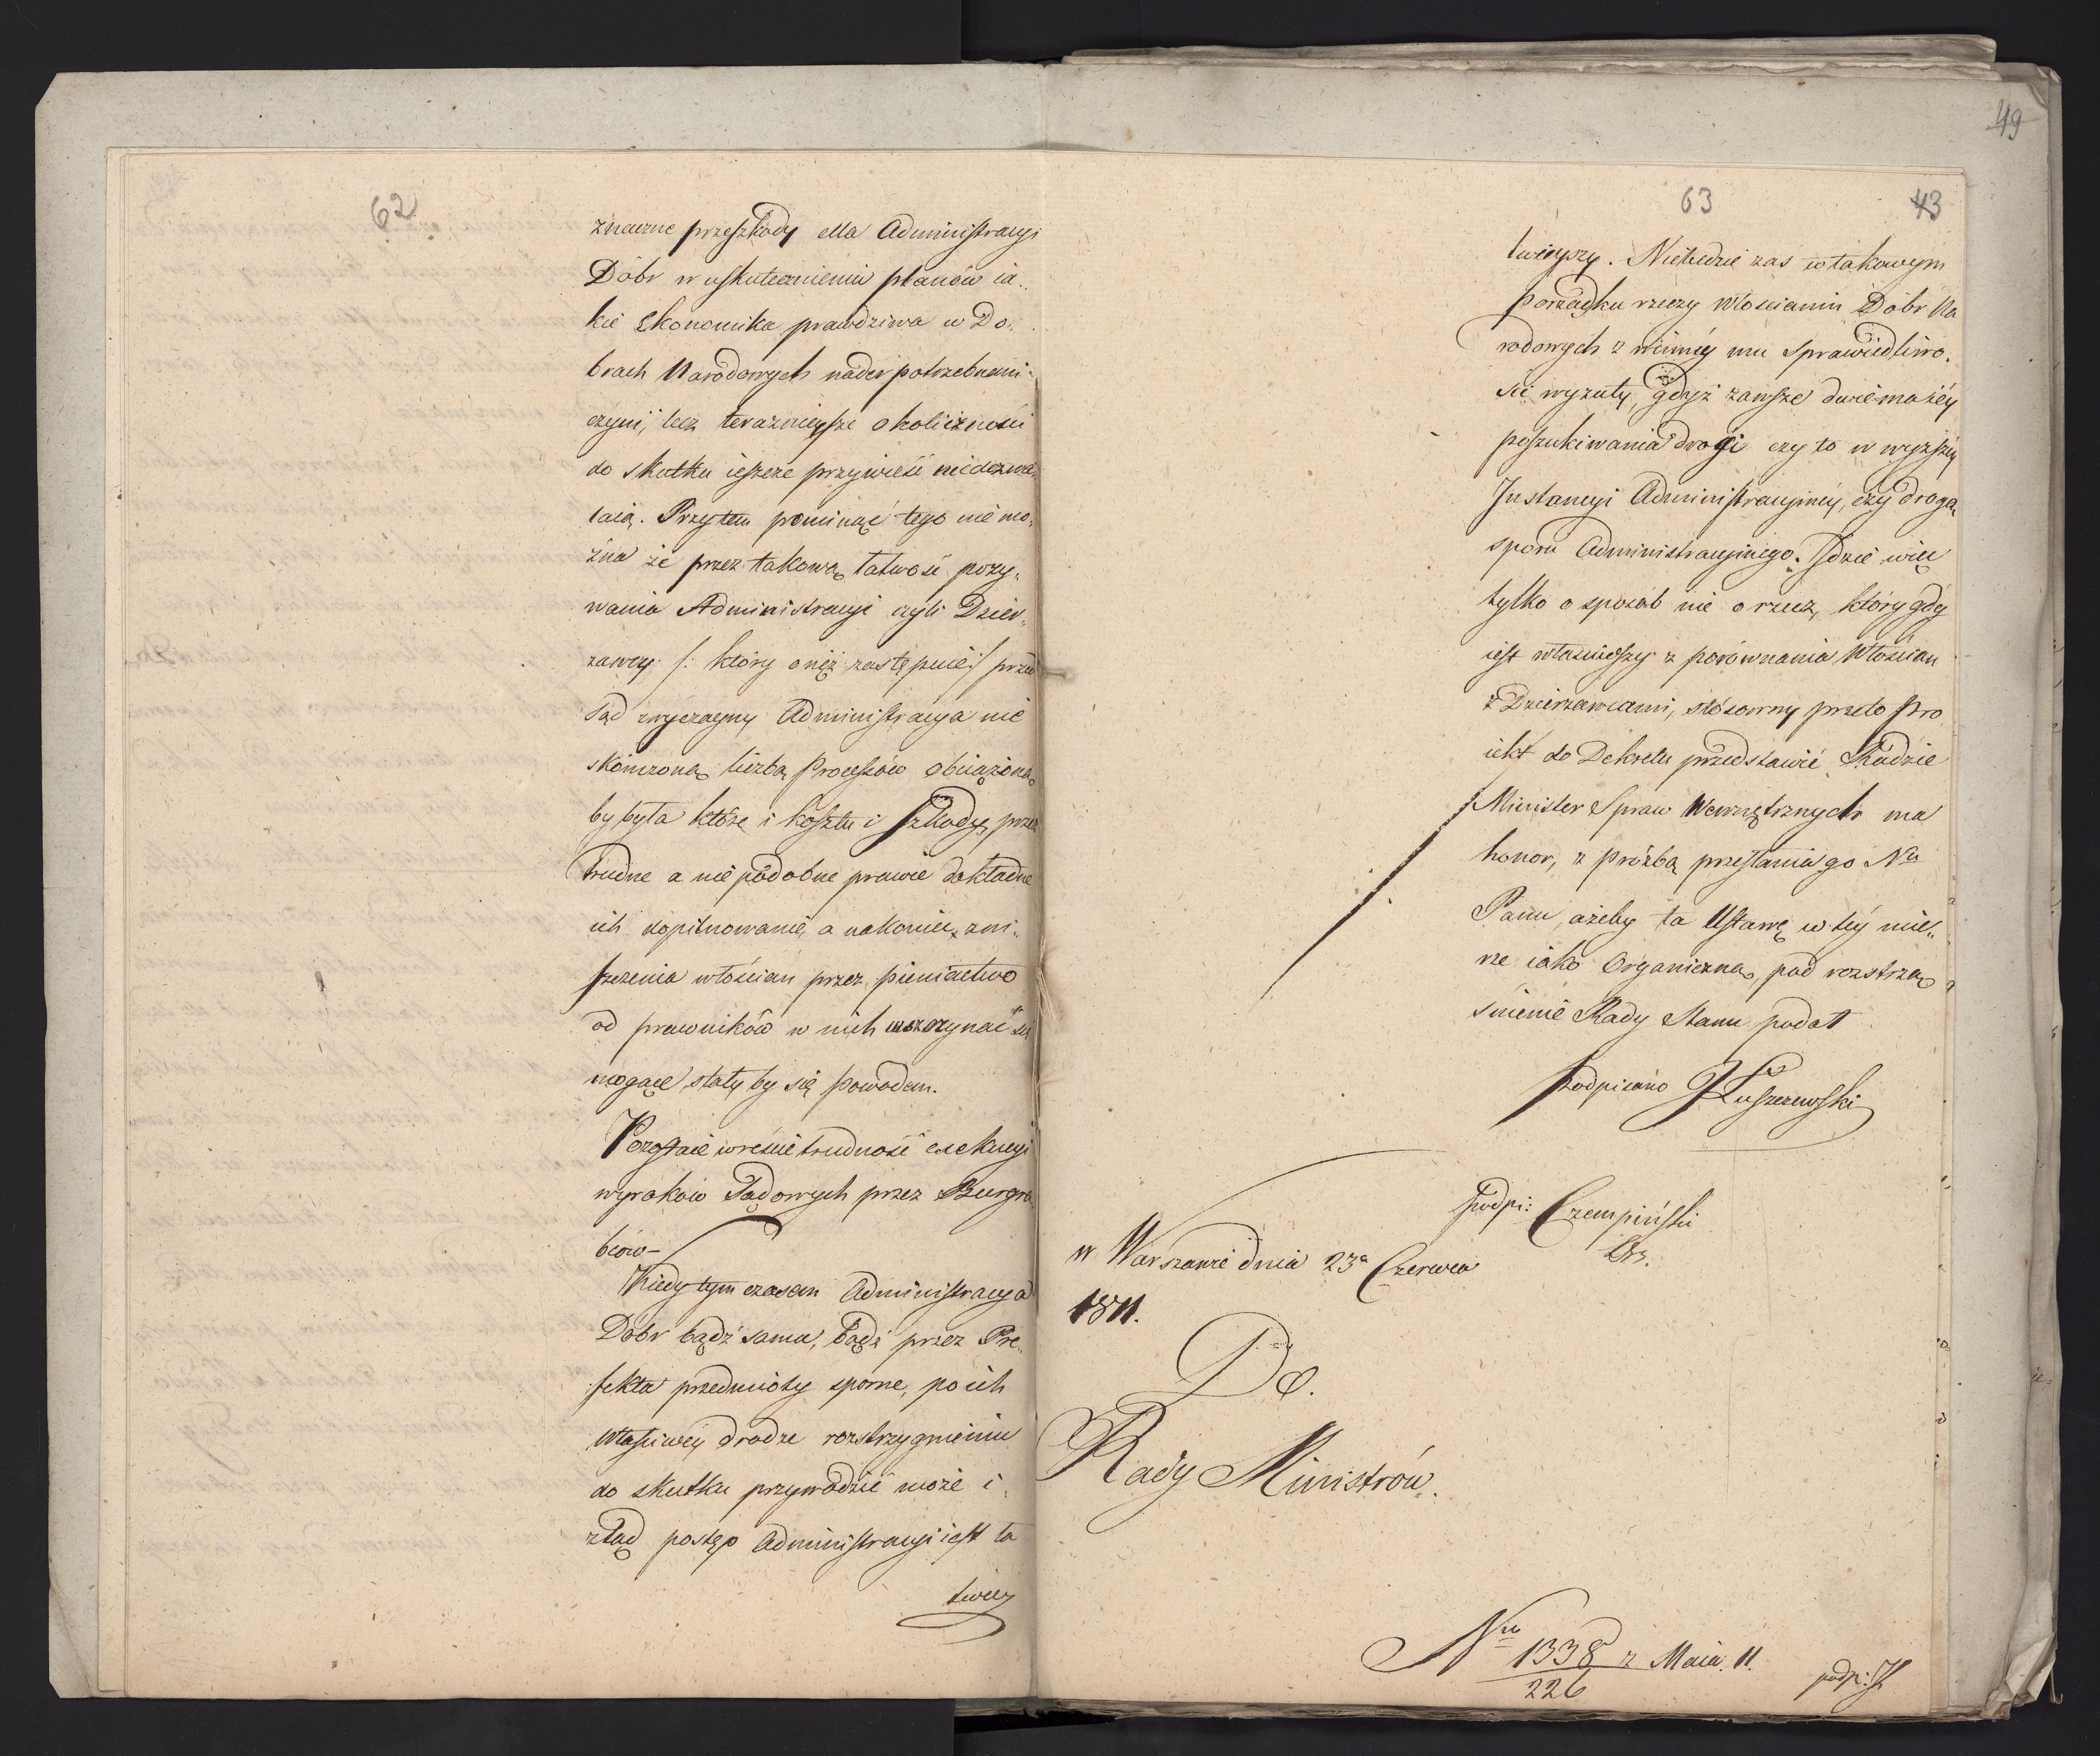 62
znaczne przeszkody dla Administracyi
Dóbr w uskutecznieniu planów ia„
kie Ekonomika prawdziwa w Do„
brach Narodowych nader potrzebnemi
czyni, lecz teraznieysze okoliczności
do skutku ieszcze przywieść niedozwa„
laią. Przytem pominąć tego nie mo„
żna że przez takową łatwość pozy„
wania Administracyi czyli Dzier„
zawcy /: który onęż zastępuie :/ przed
Sąd zwyczayny Administracya nie
skończoną liczbą Processów obciążoną
by była które i kosztu i szkody, przez
trudne a nie podobne prawie dokładne
ich dopilnowanie, a nakoniec zni„
szczenia włościan przez pieniactwo
od prawników w nich wszczynać się
mogące, stały by się powodem.
Pozostaie wreście trudność exekucyi
wyroków Sądowych przez Burgra„
biów –
Kiedy tym czasem Administracya
Dóbr bądź sama, bądź przez Pre„
fekta przedmioty sporne, po ich
właściwey drodze rozstrzygnieniu
do skutku przywodzić może i
ztąd postęp Administracyi iest ła
twiey
49
63 43
twieyszy. Niebędzie zas w takowym
porządku rzeczy Włościanin Dóbr Na
rodowych z winney mu Sprawiedliwo„
ści wyzuty, gdyż zawsze dwie ma iéy
poszukiwania drogi czy to w wyższéy
Instancyi Administracyinéy, czy drogą
sporu Administracyinego. Idzie więc
tylko o sposób nie o rzecz, który gdy
iest właśnieyszy z porównania Włościan
z Dzierzawcami, stósowny przeto Pro
iekt do Dekretu przedstawić Radzie
Minister Spraw Wewnętrznych ma
honor, z prózbą przesłania go Nu
Panu, ażeby ta Ustawę w téy mie„
rze iako Organiczną, pod roztrzą
śnienie Rady Stanu podał
Podpisano J Łuszczewski
podpi: Czempiński
w Warszawie dnia 23a Czerwca
1811.
Do.
Rady Ministrów.
Nru 1338 z Maia 11.
226
podp: